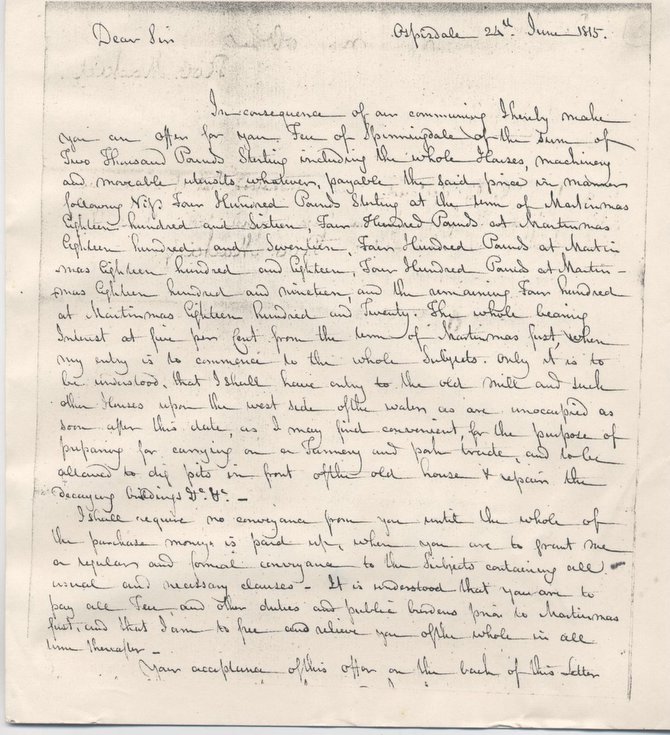 Dear Sir Ospisdale 24th. June 1815.
In consequence of our communing I hereby make
you an offer for your Feu of Spinningdale of the sum of
Two Thousand Pounds Sterling including the whole Houses, machinery
and moveable utensils whatever, payable the said price in manner
following Viz. Four Hundred Pounds Sterling at the term of Martinmas
Eighteen hundred and Sixteen, Four Hundred Pounds at Martinmas
Eighteen hundred and Seventeen, Four Hundred Pounds at Martin
mas Eighteen hundred and Eighteen, Four Hundred Pounds at Martin-
mas Eighteen hundred and nineteen, and the remaining Four hundred
at Martinmas Eighteen Hundred and Twenty. The whole bearing
Interest at five per Cent from the term of Martinmas first, when
my entry is to commence to the whole Subjects. only it is to
be understood, that I shall have entry to the old mill and such
other Houses upon the west side of the water, as are unoccupied as
soon after this date, as I may find convenient, for the purpose of
preparing for carrying on a Tannery and pork trade, and to be
allowed to dig pits in front of the old house & repair the
decaying buildings &c. &c. -
I shall require no conveyance from you until the whole of
the purchase money is paid up, when you are to grant me
a regular and formal conveyance to the Subjects containing all
usual and necessary clauses - It is understood that you are to
pay all Feu, and other duties and public burdens prior to Martinmas
first, and that I am to free and relieve you of the whole in all
time thereafter -
Your acceptance of this offer on the back of this Letter